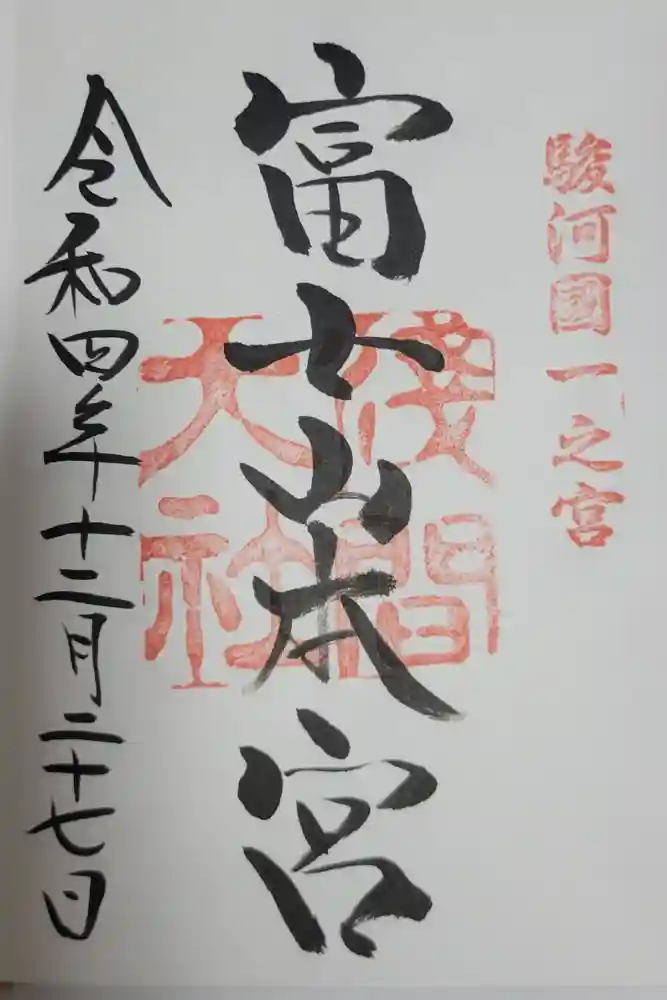 駿河國一之宮
富士山本宮
淺間
大社
令和四年十二月二十七日